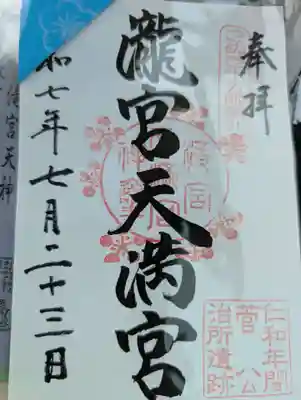 奉拝
瀧宮天満宮
和七年七月二十三日
仁和年間
菅公
治所遺跡
宮天神